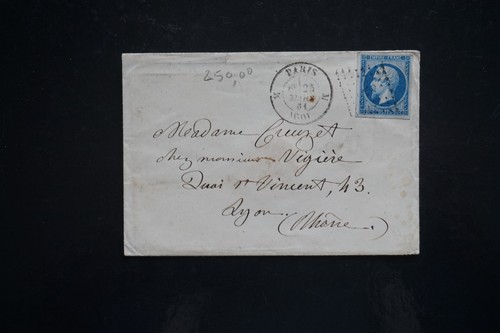 250,00
PARIS
25
54
(60)
M M
EMPIRE FRANC.
Madame Creuzet
chez monsieur Vigière
Quai St Vincent, 43.
Lyon
(Rhône)